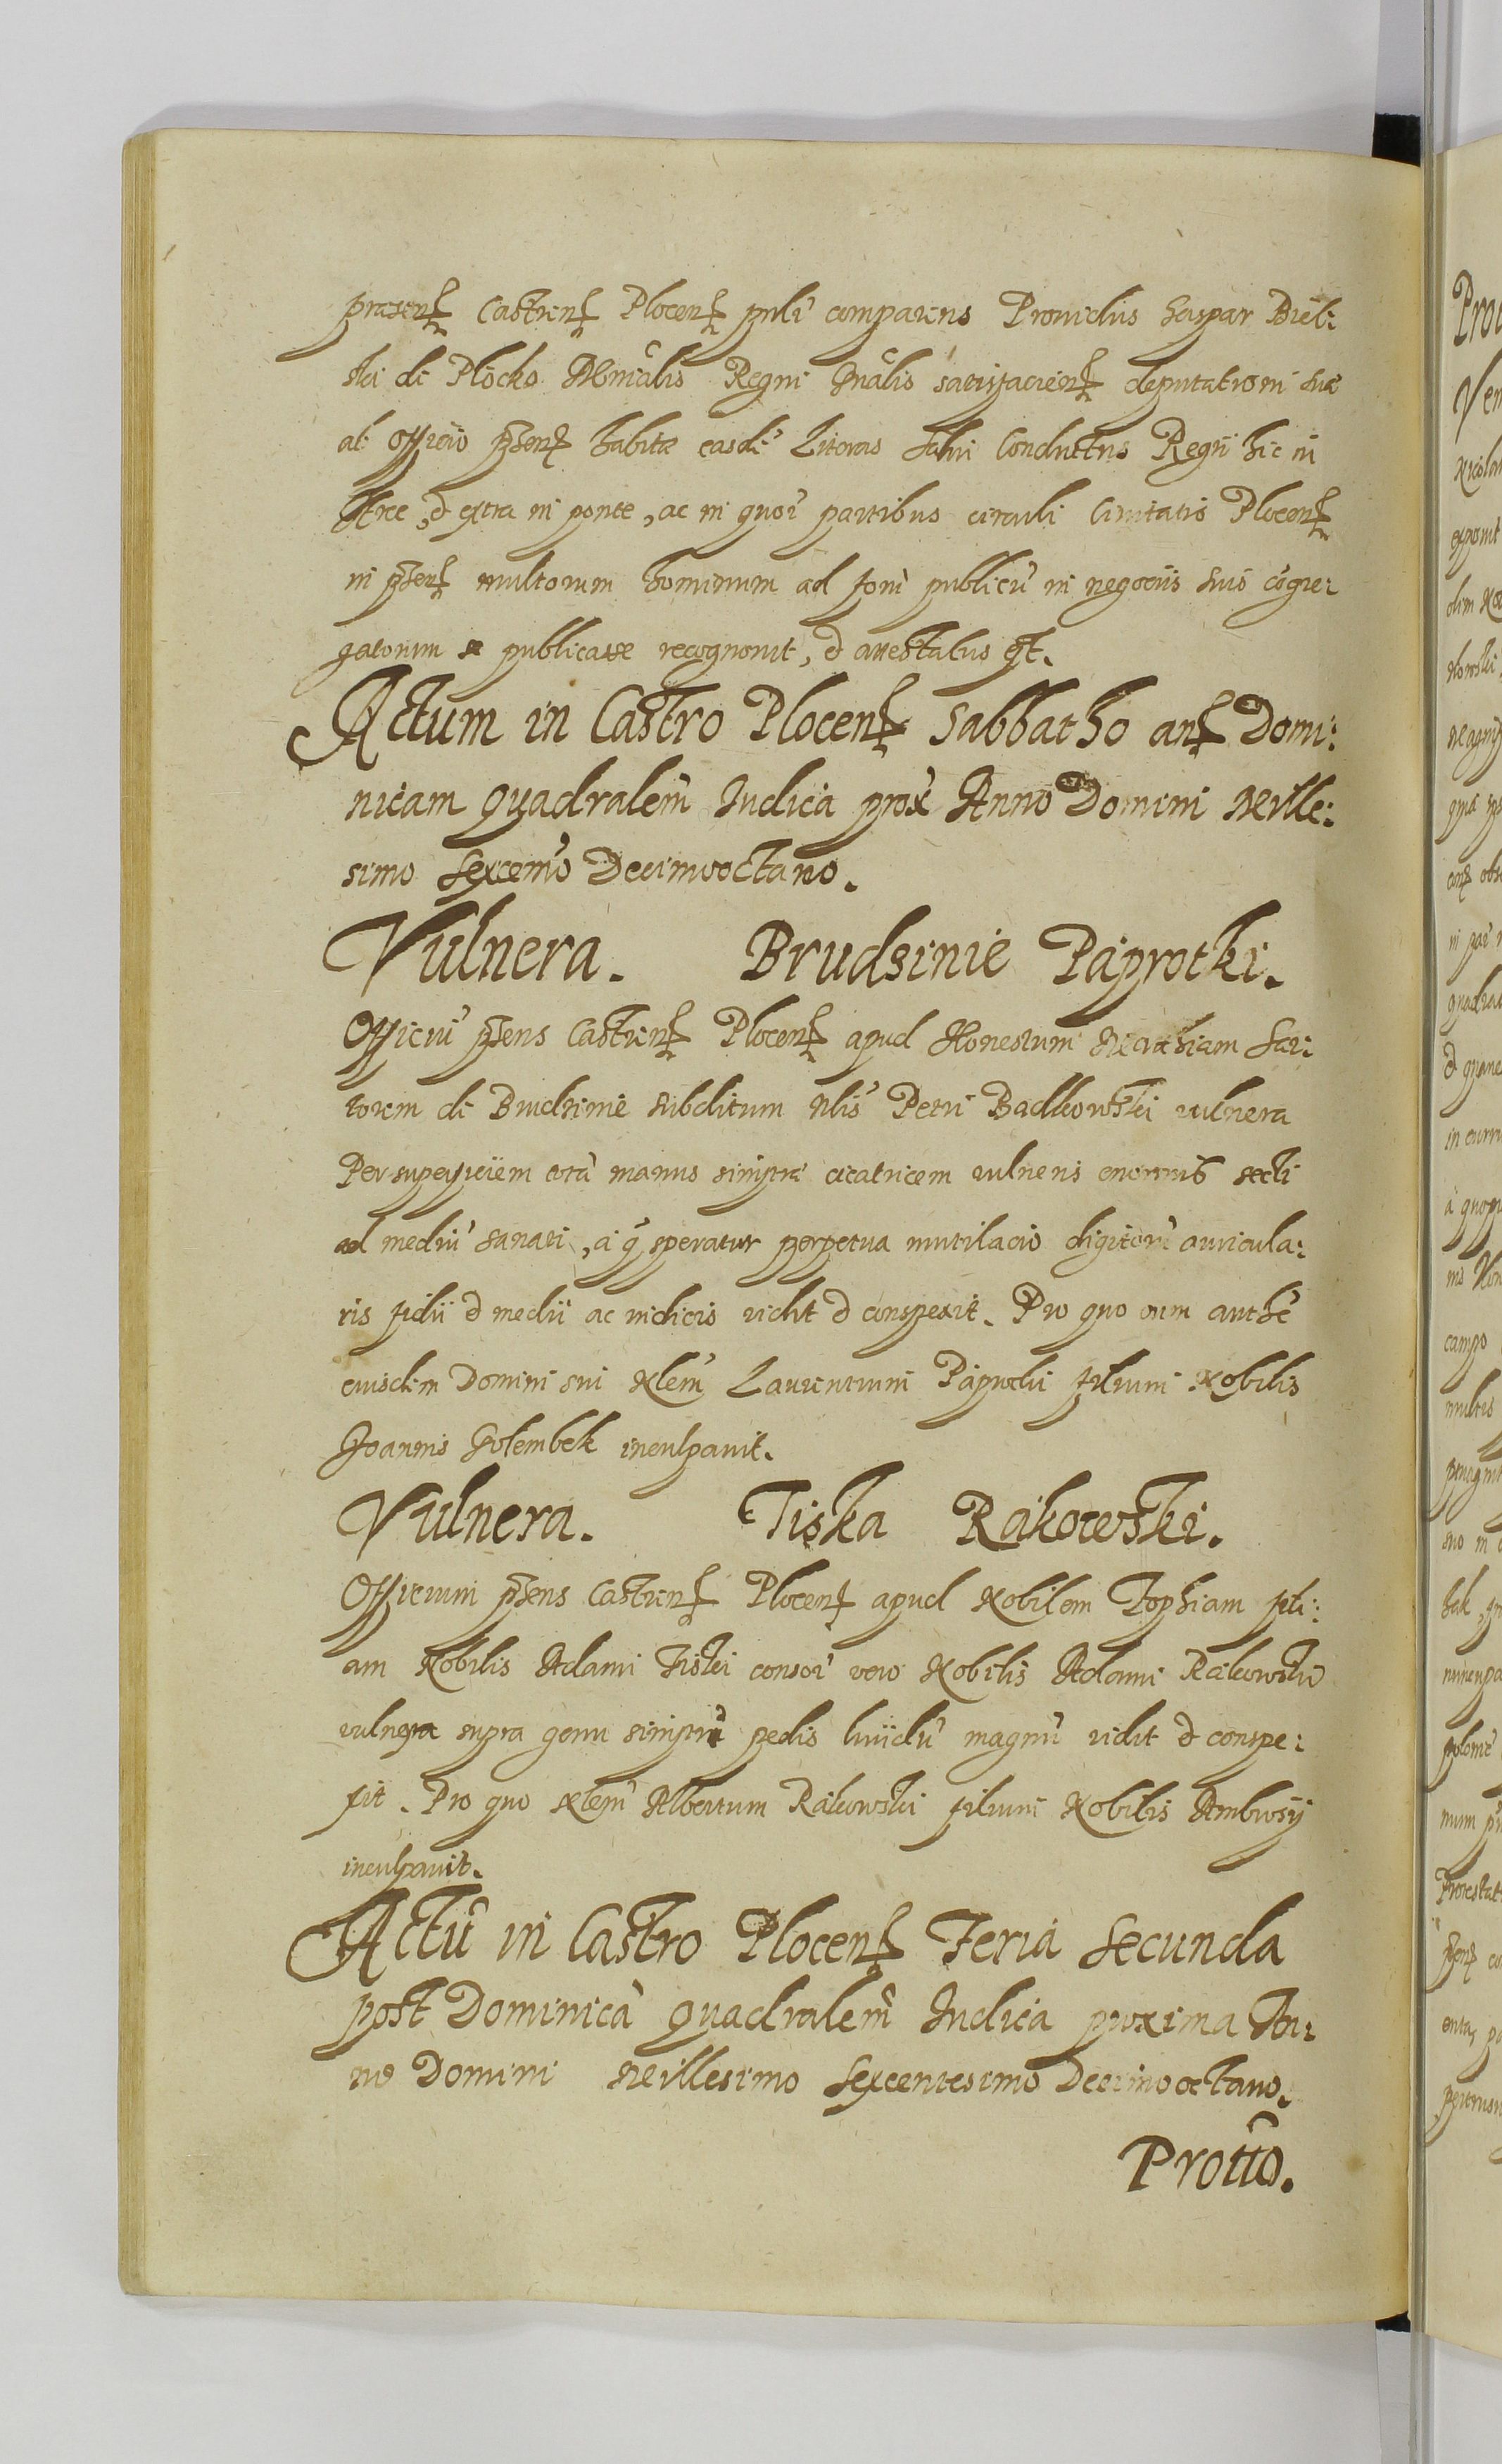 praesen Castren Plocen pnli comparens Providus Gaspar Biels:
ski de Plocko Mnralis Regni Gnalis satisfacien deputationi suae
ab officio pnsen habitae easdē Literas Salvi Conductus Regii hic in
Arce, et extra in ponte, ac in quoī partibus circuli Civitatis Plocen
in pnsen multorum hominum ad forū publicū in negociis suis cōgre:
gatorum se publicasse recognovit, et attestatus est.
Actum in Castro Plocen Sabbatho an Domi:
nicam quadralem Judica prox Anno Domini Mille:
simo Sexcemo Decimooctavo.
Vulnera. Brudzinie Paprotki.
Officiū pnsens Castren Plocen apud Honestum Mathiam Sar:
torem de Brudzinie subditum Nlis Petri Badkowski vulnera
Per superficiem totā manus sinistrae cicatricem vulneris enormis secti
ad mediū sanati, a q speratur perpetua mutilacio digitorū auricula:
ris fidii et medii ac indicis vidit et conspexit. Pro quo cum authē
eiusdem Domini sui Nlem Laurentium Paprocki filium Nobilis
Joannis Golembek inculpavit.
Vulnera. Tiska Rakowski.
Officium pnsens Castren Plocen apud Nobilem Zophiam fili:
am Nobilis Adami Tiski consor vero Nobilis Adami Rakowski
vulnera supra genu sinistri pedis lividū magnū vidit et conspe:
xit. Pro quo Nlem Albertum Rakowski filium Nobilis Ambrosij
inculpavit.
Actū in Castro Plocen Feria Secunda
post Dominicā quadralem Judica proxima An:
no Domini Millesimo Sexcentesimo Decimooctavo.
Protto.
Pro
Ven
Nicola
exponit
olim No
campo
multis
Protestat